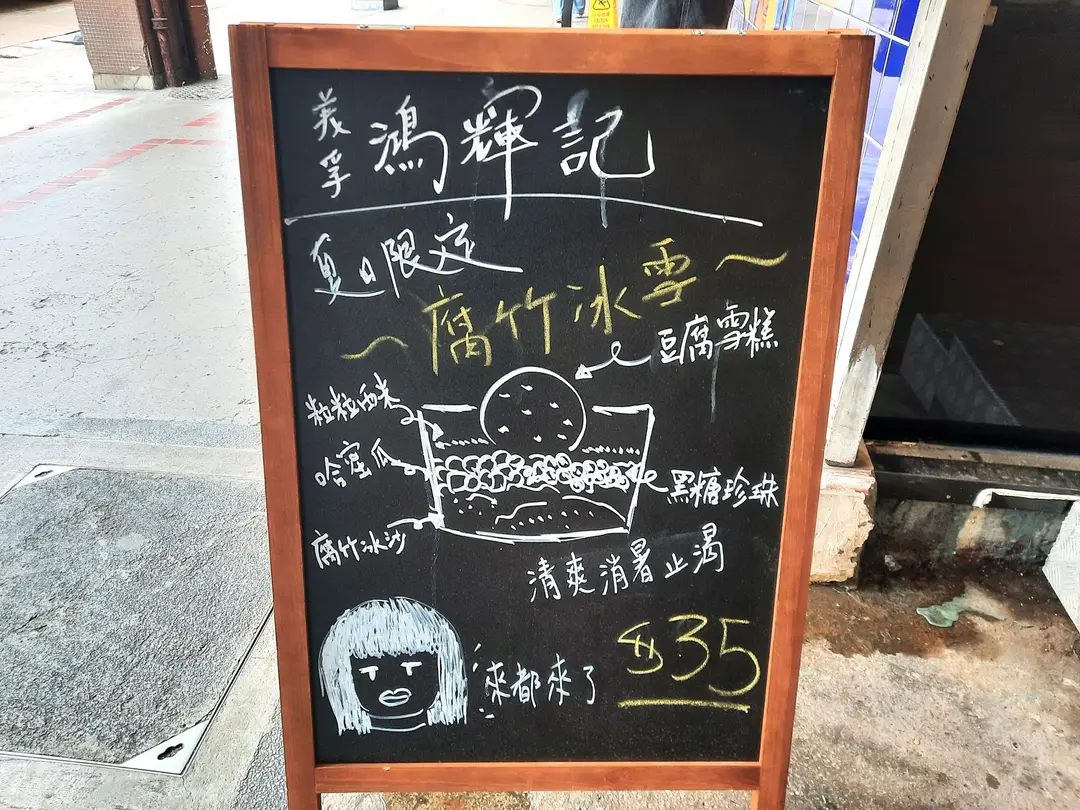 美孚 鴻輝記
夏日限定
～腐竹冰雪～
豆腐雪糕
粒粒西米
哈蜜瓜
黑糖珍珠
腐竹冰沙
清爽消暑止渴
來都來了
$35